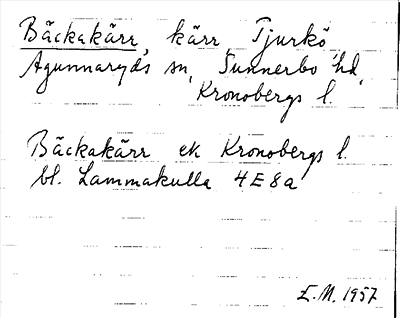 Bäckakärr, kärr, Tjurkö,
Agunnaryds sn, Sunnerbo hd,
Kronobergs l.
Bäckakärr ek Kronobergs l.
bl. Lammakulla 4E8a
E.M. 1957